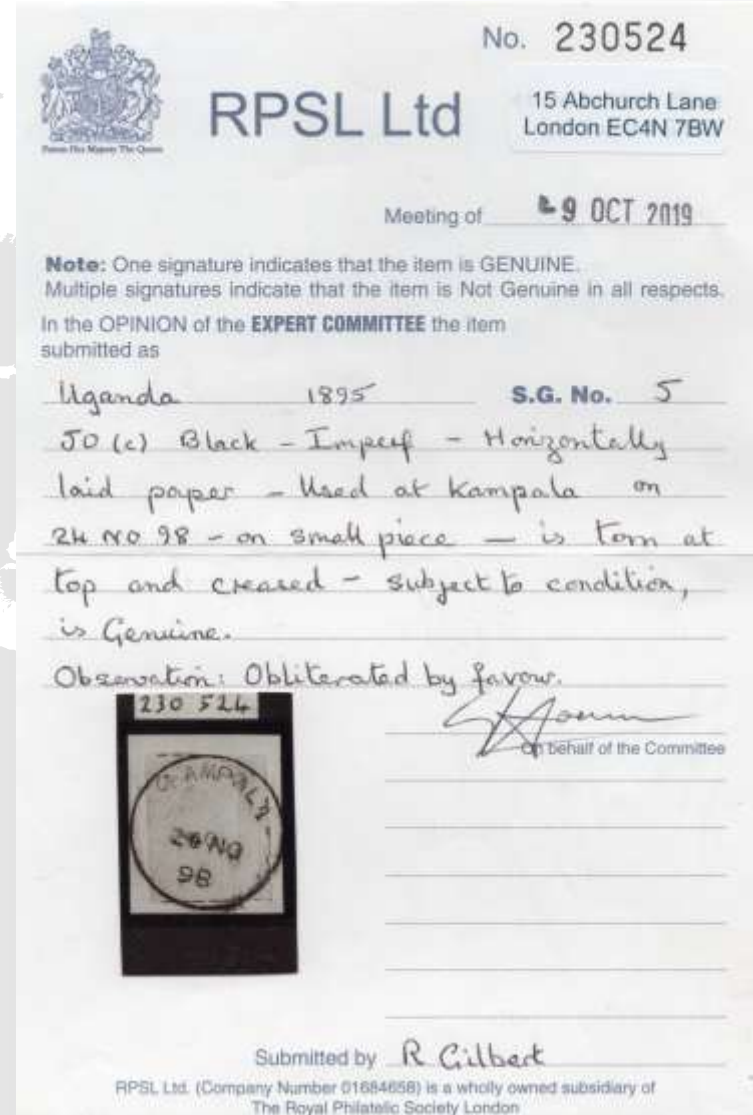 No. 230524
RPSL Ltd
15 Abchurch Lane
London EC4N 7BW
Patron Her Majesty The Queen
Meeting of 9 OCT 2019
Note: One signature indicates that the item is GENUINE.
Multiple signatures indicate that the item is Not Genuine in all respects.
In the OPINION of the EXPERT COMMITTEE the item
submitted as
Uganda 1895 S.G. No. 5
50 (c) Black - Imperf - Horizontally
laid paper - Used at Kampala on
24 NO 98 - on small piece - is torn at
top and creased - subject to condition,
is Genuine.
Observation: Obliterated by favour.
230 524
On behalf of the Committee
KAMPALA
24 NO
98
Submitted by R Gilbert
RPSL Ltd. (Company Number 01684658) is a wholly owned subsidiary of
The Royal Philatelic Society London